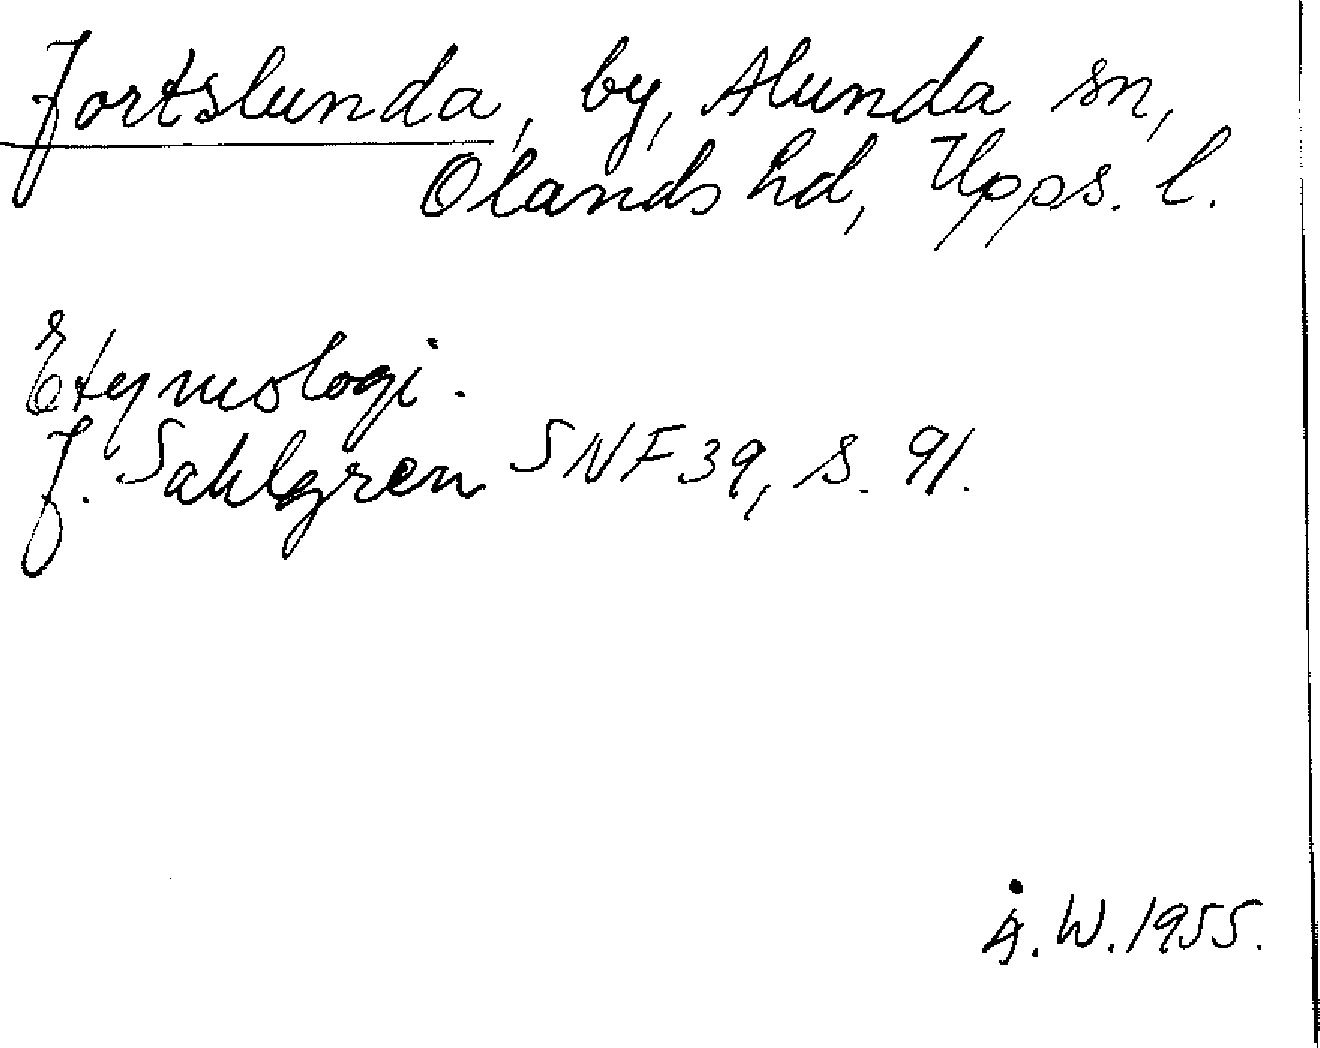 Jortslunda, by, Alunda sn,
Olands hd, Upps. l.
Etymologi.
J. Sahlgren SNF 39, s. 91.
Å. W. 1955.